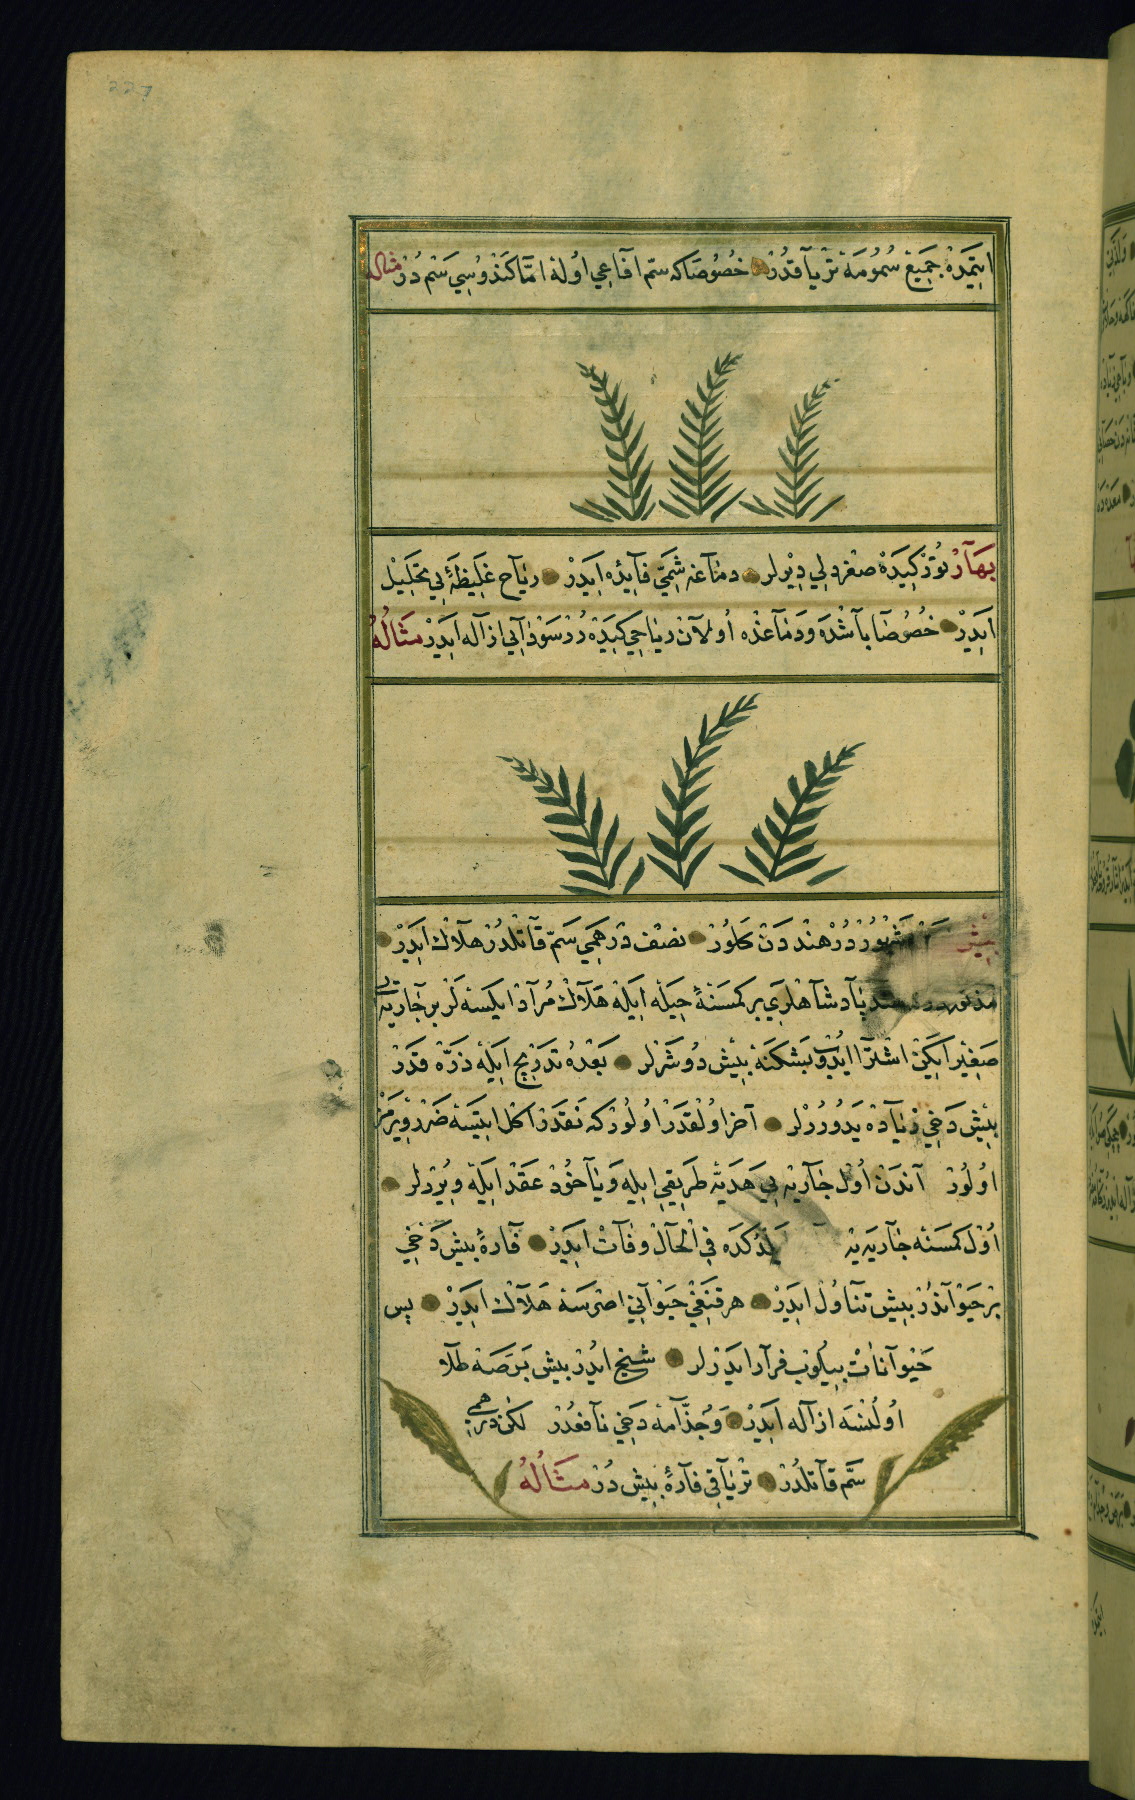 227
ايتمده جَمِيعِ سُمُومَه تریاقدُر خُصُوصًاکه سمّ افاعِي اوله امّا کندوسی سَم دُر مثاله
بهَار نوترکیده صغر دیلی دیرلر دمٰاغه شمّی فآیده ایدر ریاح غلیظه‌یی تحلیل
ایدر خُصُوصًا باشده و دماغده اولان ریاحی کبیده در سوداآیی ازاله ایدر مثالُهُ
بیش دُر هنددن کلور نصف درهمی سمّ قاتلدر هلاك ایدر
پادشاهلری بر کمسنهٔ حیله ایله هلاك مراد ایکسه لر بر جاریه‌یی
صغیر ایکن اشترا ایدوب بشکنه بیش دوشرلر بعده تدریج ایله ذرّه قدر
بیش دخی زیاده یدورُرلر آخر اولقدر اولورکه نقدر اکل ایتسه ضرر ویرمز
اولور آندن اول جاریه یی هدیّه طریقی ایله و یاخود عقد ایله ویررلر
اول کمسنه جاریه یه کده فی الحال وفات ایدر فارهٔ بیش دخی
بر حیواندر بیش تناول ایدر هر قنغی حیوانی اصرسه هلاك ایدر پس
حیوانات بیلوب فرار ایدرلر شیخ ایدر بیش برصه طلا
اولنسه ازاله ایدر و جذامه دخی نافعدر لکن درهمی
سمّ قاتلدر تریاقی فارهٔ بیش دُر مثالُهُ